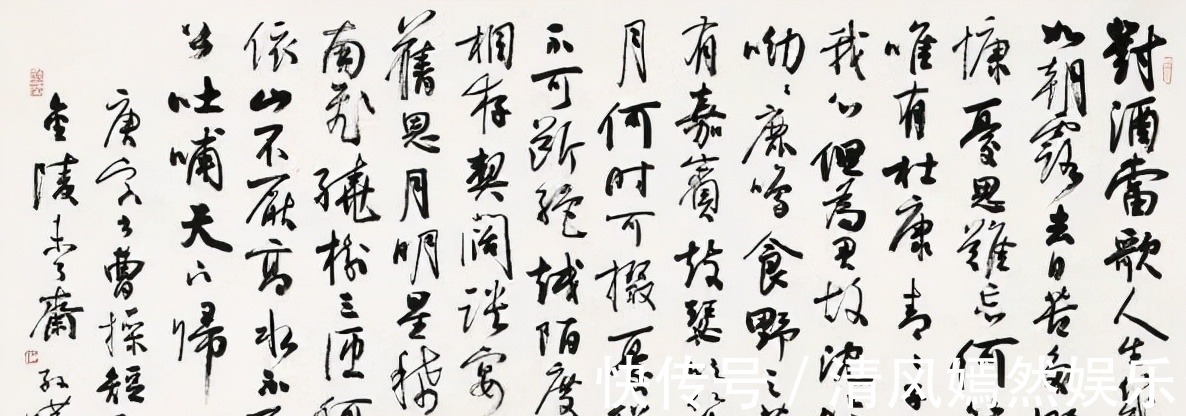 對酒當歌人生
如朝露去日苦多
慷憂思難忘何
唯有杜康青
我心但為君故沈
呦呦鹿鳴食野之
有嘉賓鼓瑟吹
月何時可掇憂
不可斷絕越陌度
相存契闊談宴
舊恩月明星稀
南飛繞樹三匝何
依山不厭高水不
公吐哺天下歸
庚寅書曹操短
金陵未了齋
快传号 / 清风嫣然娱乐